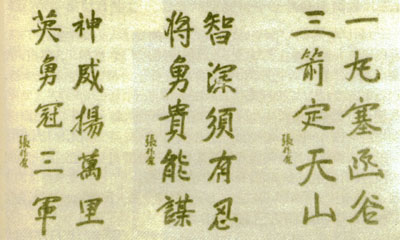 一丸塞函谷
三箭定天山
張
智深須有忍
將勇貴能謀
張
神威揚萬里
英勇冠三軍
張